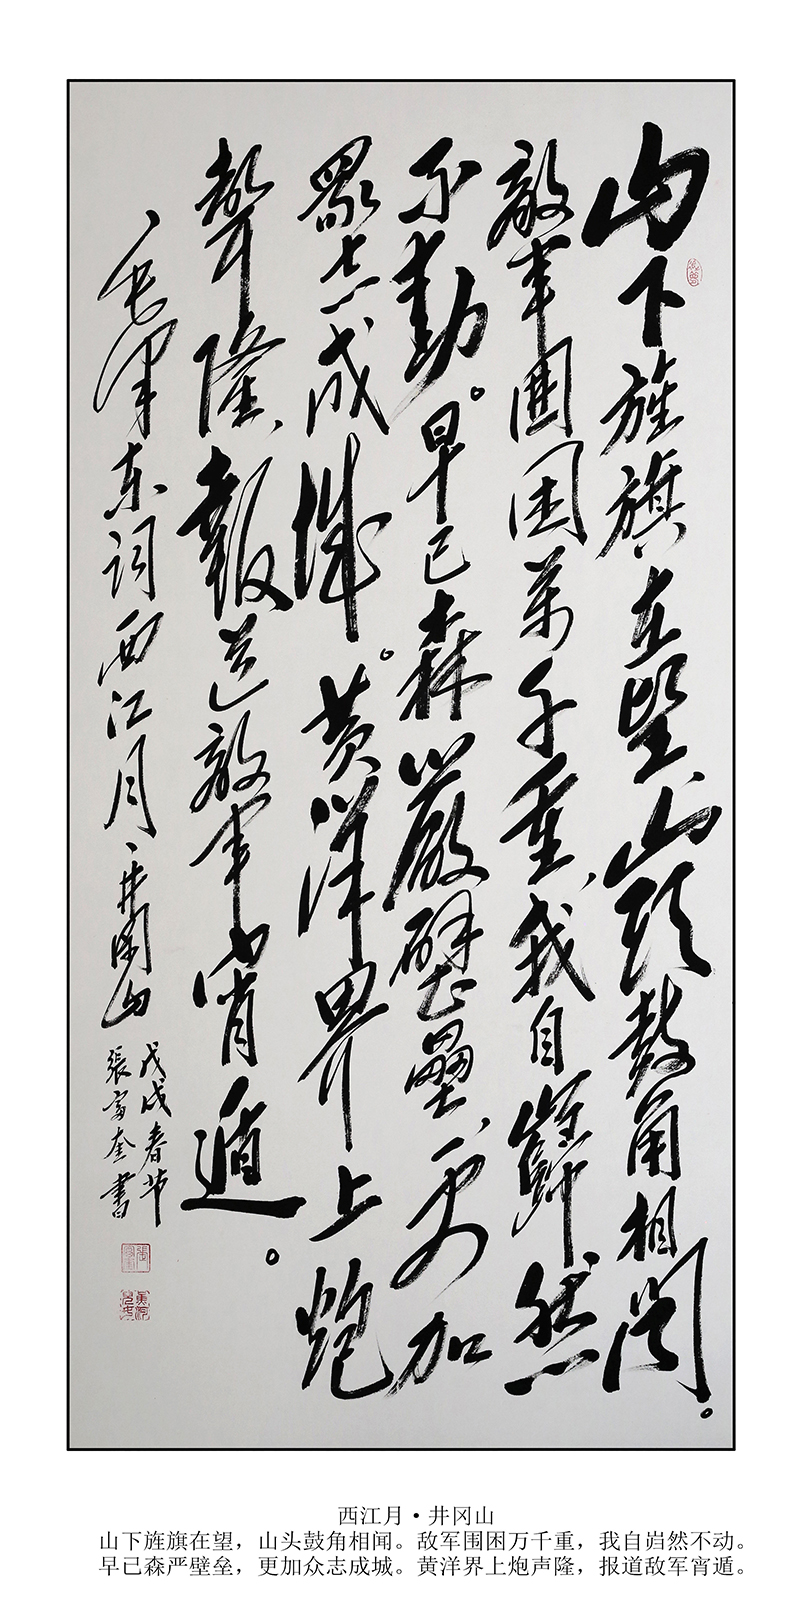 山下旌旗在望山头鼓角相闻。
敌军围困万千重我自巋然
不動。早已森嚴壁壘更加
眾志成城。黄洋界上炮
聲隆報道敌军宵遁。
毛泽东词西江月井岡山
戊戌春节
張富奎書
西江月·井冈山
山下旌旗在望，山头鼓角相闻。敌军围困万千重，我自岿然不动。
早已森严壁垒，更加众志成城。黄洋界上炮声隆，报道敌军宵遁。